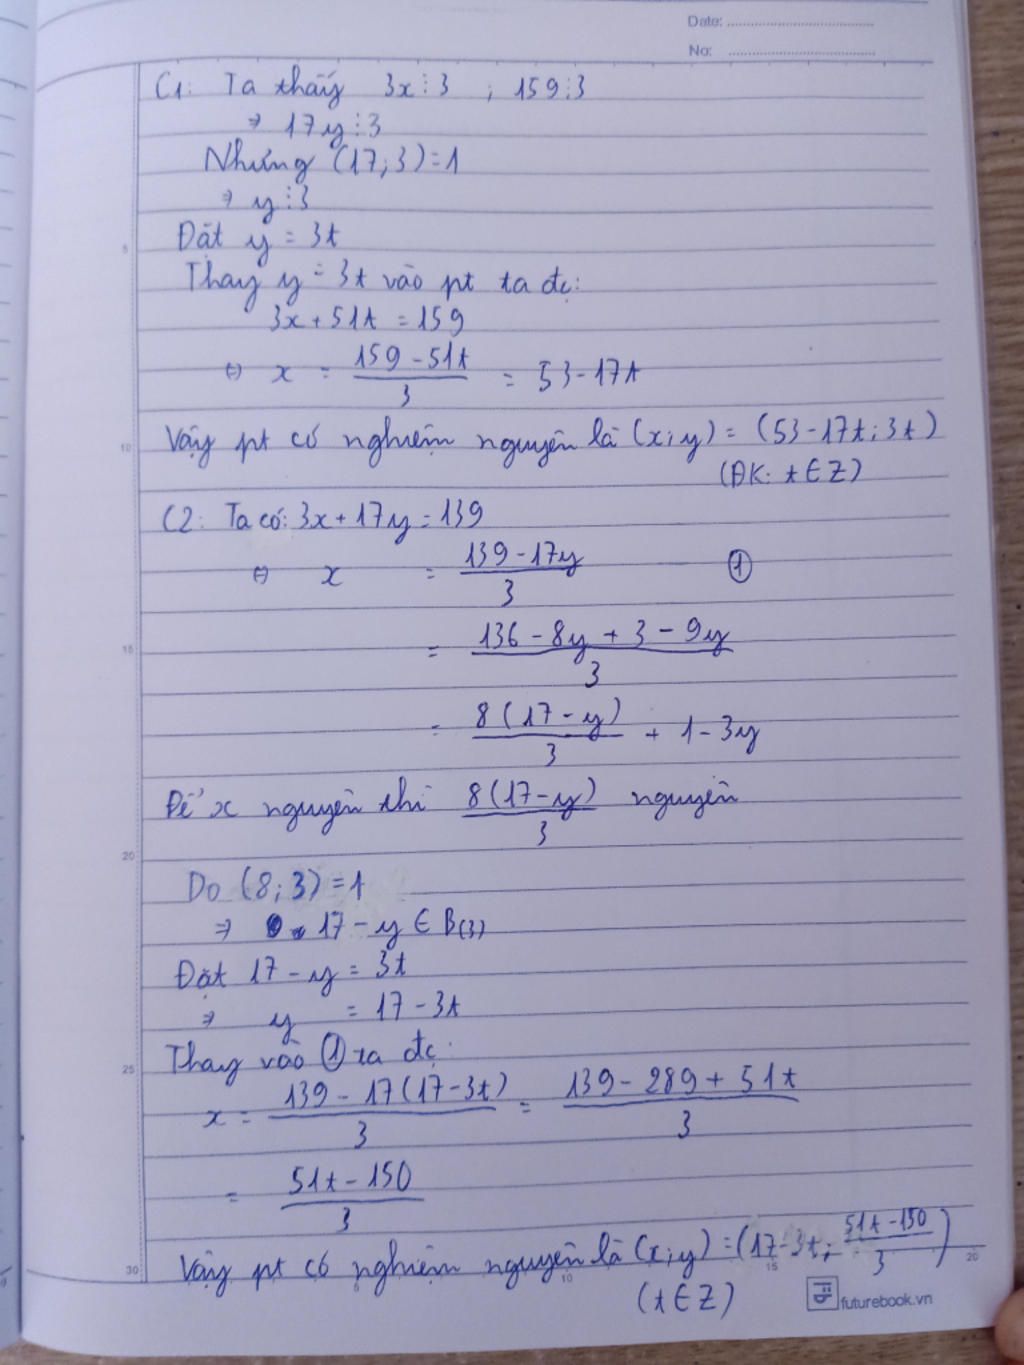 Date: ........................................
No: ........................................
C1: Ta thấy 3x⋮3 ; 159⋮3
⇒ 17y⋮3
Nhưng (17;3)=1
⇒ y⋮3
Đặt y = 3t
Thay y = 3t vào pt ta đc:
3x + 51t = 159
⇔ x = \frac{159 - 51t}{3} = 53 - 17t
Vậy pt có nghiệm nguyên là (x;y) = (53-17t; 3t)
(ĐK: t∈Z)
C2: Ta có: 3x + 17y = 139
⇔ x = \frac{139 - 17y}{3} ①
= \frac{136 - 8y + 3 - 9y}{3}
= \frac{8(17 - y)}{3} + 1 - 3y
Để x nguyên thì \frac{8(17-y)}{3} nguyên
Do (8; 3) = 1
⇒ 17 - y ∈ B(3)
Đặt 17 - y = 3t
⇒ y = 17 - 3t
Thay vào ① ta đc:
x = \frac{139 - 17(17-3t)}{3} = \frac{139 - 289 + 51t}{3}
= \frac{51t - 150}{3}
Vậy pt có nghiệm nguyên là (x;y) = (17-3t; \frac{51t-150}{3})
(t∈Z)
5
10
15
20
25
30
5
10
15
20
futurebook.vn